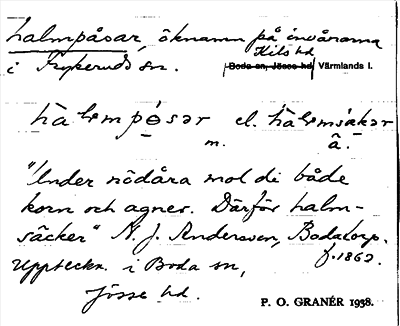 halmpåsar, öknamn på invånarna
i Frykeruds sn. Kils hd
Boda sn, Jösse hd Värmlands l.
hàlmpósər el. hàlmsäkər
m. â.
"Under nödåra mol di både
korn och agner. Därför halm-
säcker" N. J. Andersson, Bodatorp.
f. 1862.
Uppteckn. i Boda sn,
Jösse hd.
P. O. GRANÉR 1938.